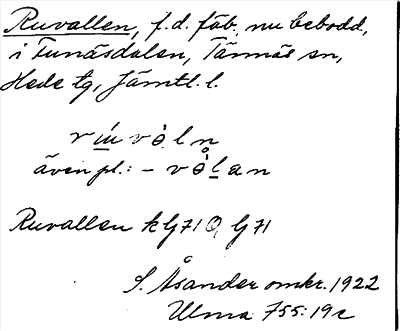 Ruvallen, f.d. fäb., nu bebodd,
i Funäsdalen, Tännäs sn,
Hede tg, Jämtl. l.
även pl.:
Ruvallen k G71 O, G71
S. Åsander omkr. 1922
Ulma 755:19c